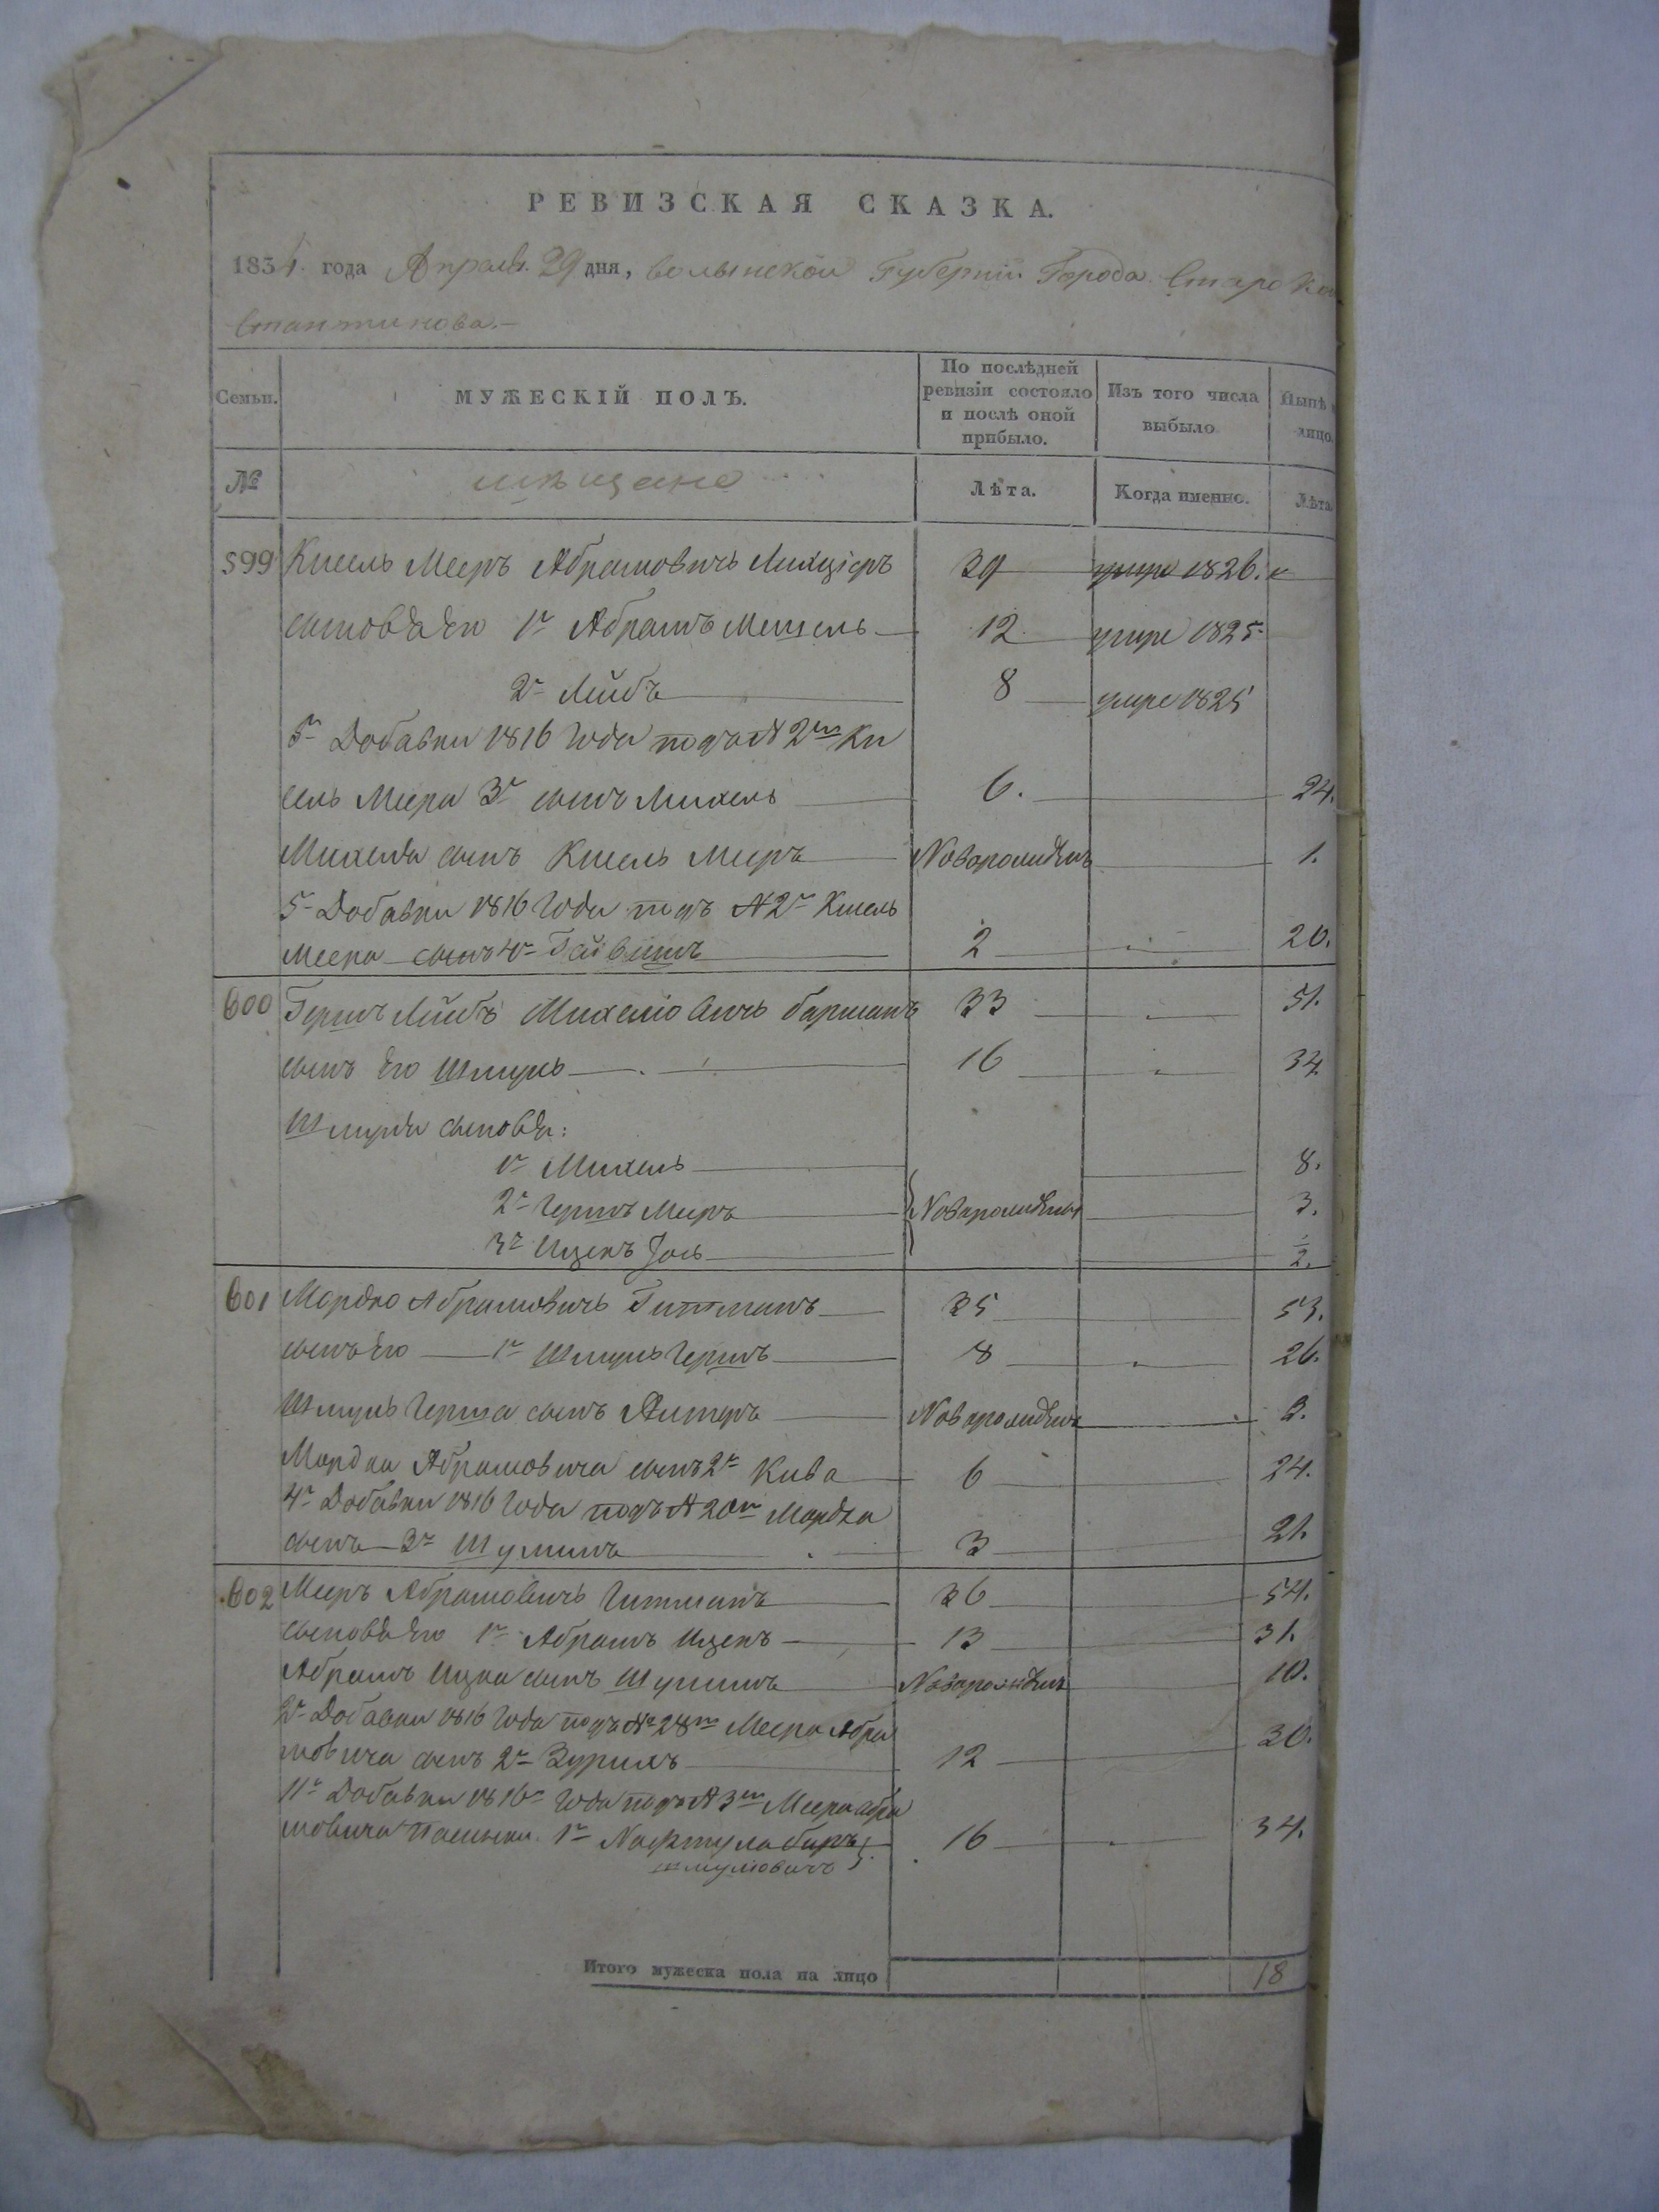 РЕВИЗСКАЯ СКАЗКА.
1834 года Апреля 29 дня, Волынской Губерніи Города Старо Кон
стантинова.—
Семьи. МУЖЕСКІЙ ПОЛЪ. По послѣдней ревизіи состояло и послѣ оной прибыло. Изъ того числа выбыло Нынѣ лицо
№ мѣщане Лѣта. Когда именно. Лѣта
599 Кисель Мееръ Абрамовичъ 39 умре 1826.
сыновья Его 1й Абрамъ 12 умре 1825
2й Лейбъ 8 умре 1825
5й Добавки 1816 Года подъ N 2мъ Ки
сель Меера 3й сынъ Михель 6. 24.
Михеля сынъ Кисель Мееръ Новорожденъ 1.
5й Добавки 1816 Года подъ N 2й Кисель
Меера сынъ 4й 2 20.
600 Гершъ Лейбъ Михелiовичъ барманъ 33 51.
сынъ Его Шмуль 16 34
Шмуля сыновья:
1й Михель 8.
2й Гершъ Мееръ Новорожденны 3.
3й Ицекъ Iось ½.
601 Мордко Абрамовичъ Гитманъ 35 53.
сынъ Его 1й Шмуль Гершъ 8 26.
Шмуль Герша сынъ Новорожденъ 2.
Мордка Абрамовича сынъ 2й Кива 6 24.
4й Добавки 1816 Года подъ N 20мъ Мордка
сынъ 3й Шулимъ 3 21.
602 Мееръ Абрамовичъ Гитманъ 36 54.
сыновья Его 1й Абрамъ Ицекъ 13 31.
Абрамъ Ицка сынъ Шулимъ Новорожденъ 10.
2й Добавки 1816 Года подъ № 28мъ Меера Абра
мовича сынъ 2й 12 30.
11й Добавки 1816го Года подъ N 3мъ Меера абра
мовича пасынки 1й Нафтула беръ 16 34.
шмулiовичъ
Итого мужеска пола на лицо 18